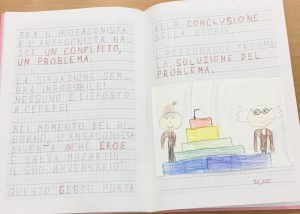 TRA IL PROTAGONISTA
E L'ANTAGONISTA NA
UN CONFLITTO,
UN PROBLEMA.
LA SITUAZIONE SEM
BRA IMPOSSIBILE!
NESSUNO È DISPOSTO
A CEDERE.
NEL MOMENTO DEL BI
SOGNO L'ANTAGONISTA
DIVENTA ANCHE EROE
E SALVA
IL SUO AVVERSARIO.
QUESTO GESTO PORTA
ALLA CONCLUSIONE
DELLA STORIA.
I PERSONAGGI TROVANO
LA SOLUZIONE DEL
PROBLEMA.